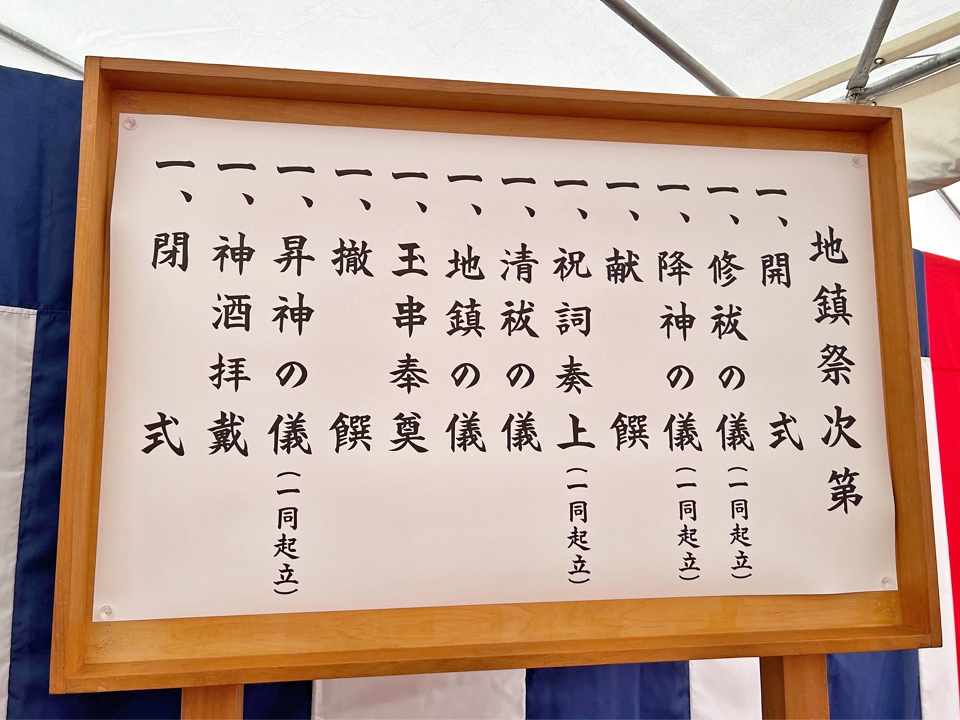 地鎮祭次第
一、開式
一、修祓の儀(一同起立)
一、降神の儀(一同起立)
一、献饌
一、祝詞奏上(一同起立)
一、清祓の儀
一、地鎮の儀
一、玉串奉奠
一、撤饌
一、昇神の儀(一同起立)
一、神酒拝戴
一、閉式